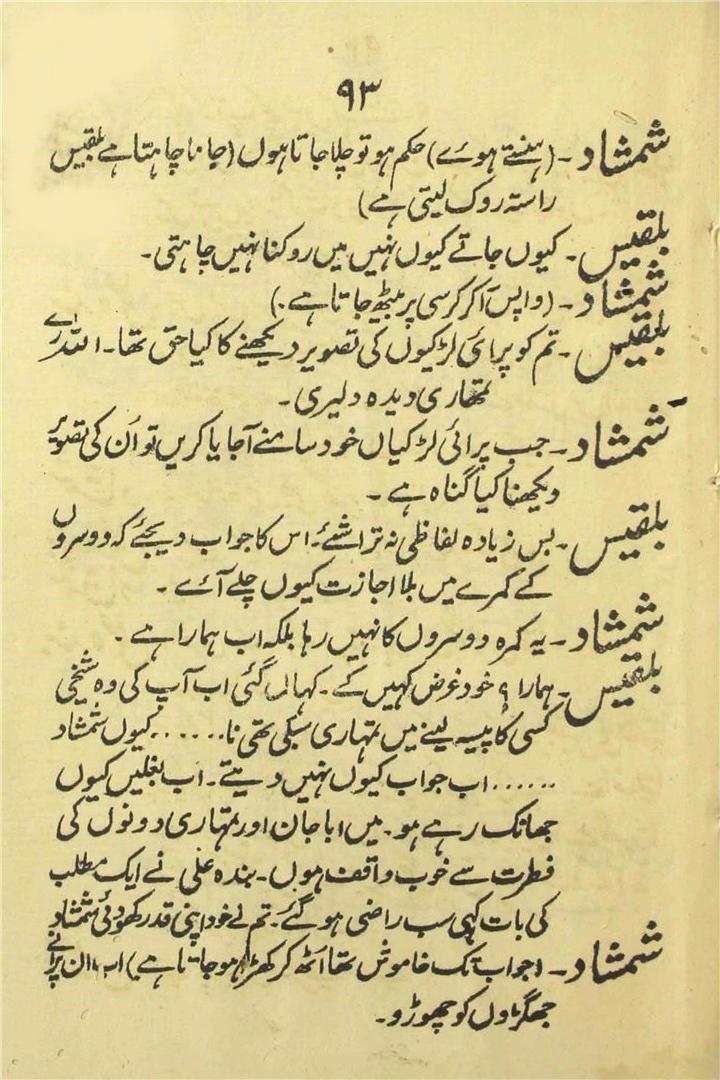 ۹۳
شمشاد ۔ (ہنستے ہوئے) حکم ہو تو چلا جاتا ہوں (جانا چاہتا ہے بلقیس
راستہ روک لیتی ہے)
بلقیس ۔ کیوں جاتے کیوں نہیں میں روکنا نہیں چاہتی۔
شمشاد ۔ (واپس آکر کرسی پر بیٹھ جاتا ہے۔)
بلقیس ۔ تم کو پرائی لڑکیوں کی تصویر دیکھنے کا کیا حق تھا۔ اللہ رے
تمھاری دیدہ دلیری۔
شمشاد ۔ جب پرائی لڑکیاں خود سامنے آجایا کریں تو اُن کی تصویر
دیکھنا کیا گناہ ہے ۔
بلقیس ۔ بس زیادہ لفاظی نہ تراشئے۔ اس کا جواب دیجئے کہ دوسروں
کے کمرے میں بلا اجازت کیوں چلے آئے ۔
شمشاد ۔ یہ کمرہ دوسروں کا نہیں رہا بلکہ اب ہمارا ہے ۔
بلقیس ۔ ہمارا؟ خود غرض کہیں کے ۔ کہاں گئی اب آپ کی وہ شیخی
کسی کا پیسہ لینے میں تمہاری سبکی تھی نا...... کیوں شمشاد
...... اب جواب کیوں نہیں دیتے ۔ اب بغلیں کیوں
جھانک رہے ہو۔ میں ابا جان اور تمہاری دونوں کی
فطرت سے خوب واقف ہوں۔ بندہ علی نے ایک مطلب
کی بات کہی سب راضی ہوگئے۔ تم نے خود اپنی قدر کھودی شمشاد
شمشاد ۔ (جو اب تک خاموش تھا اٹھ کر کھڑا ہو جاتا ہے) اب ان پرانے
جھگڑوں کو چھوڑو۔